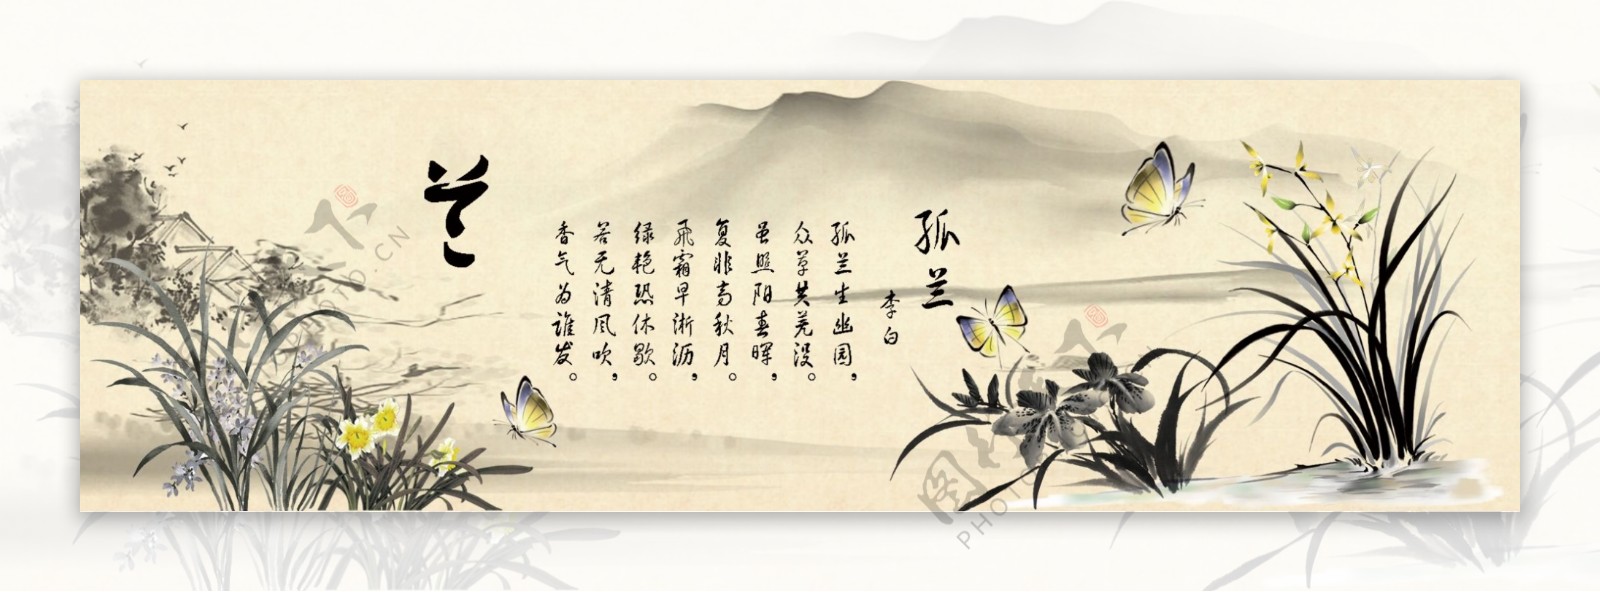 孤兰
李白
孤兰生幽园，
众草共芜没。
虽照阳春晖，
复非高秋月。
飛霜早淅沥，
绿艳恐休歇。
若无清风吹，
香气为谁发。
兰